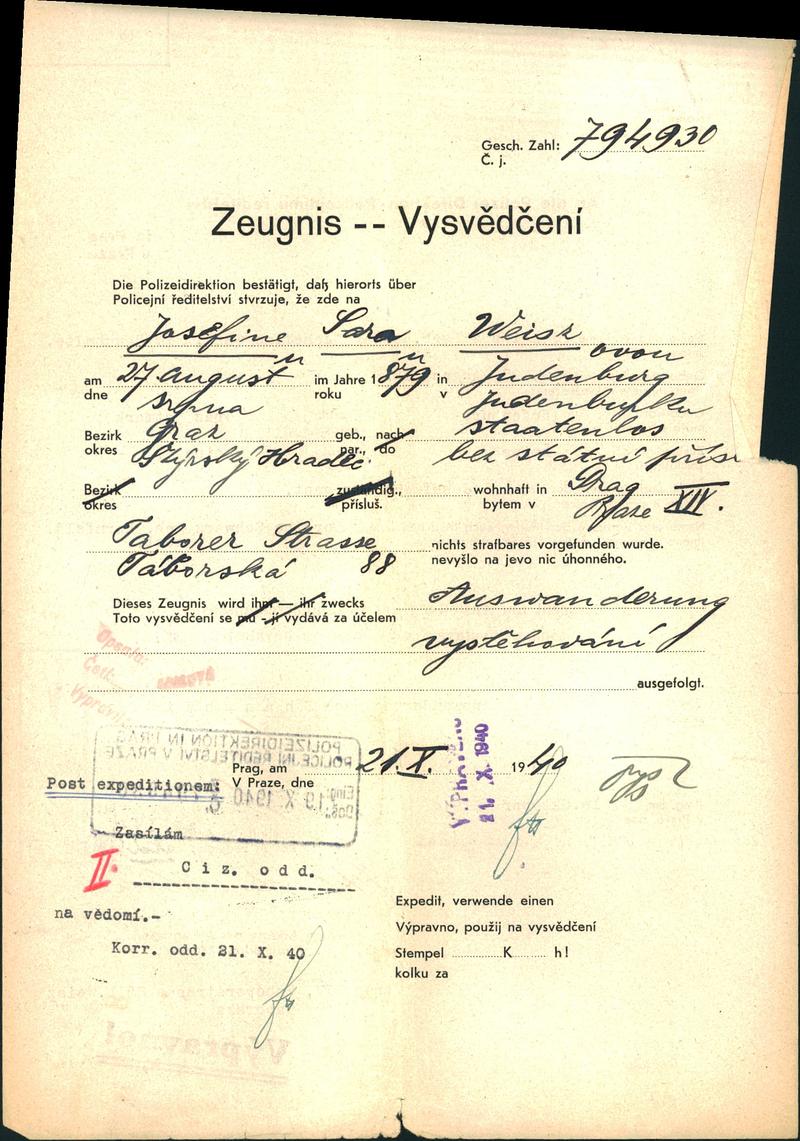 Gesch. Zahl: 794930
Č. j.
Zeugnis -- Vysvědčení
Die Polizeidirektion bestätigt, daß hierorts über
Policejní ředitelství stvrzuje, že zde na
Josefine Sara Weisz
ovou
am 27 August im Jahre 1879 in Judenburg
dne srpna roku v Judenburku
Bezirk Graz geb., nach staatenlos
okres Štýrský Hradec nar., do bez státní přísl
Bezirk zuständig., wohnhaft in Prag
okres přísluš. bytem v Praze XIV.
Taborer Strasse nichts strafbares vorgefunden wurde.
Táborská 88 nevyšlo na jevo nic úhonného.
Dieses Zeugnis wird ihm — ihr zwecks Auswanderung
Toto vysvědčení se mu - jí vydává za účelem
vystěhování
ausgefolgt.
POLIZEIDIREKTION IN PRAG
POLICEJNÍ ŘEDITELSTVÍ V PRAZE
Prag, am 21. X. 1940
V Praze, dne
Eing.
Došlo
19. X. 1940
21. X. 1940
Post expeditionem:
Zasílám
II. Ciz. odd.
na vědomí.-
Korr. odd. 21. X. 40
Expedit, verwende einen
Výpravno, použij na vysvědčení
Stempel K h!
kolku za
Výpravno!